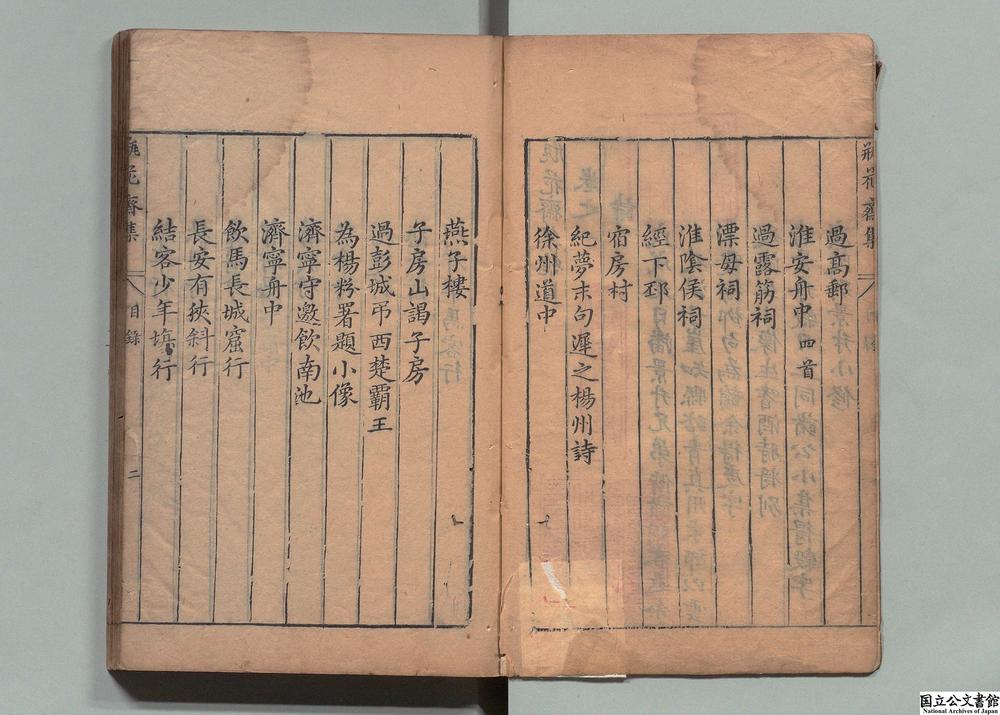 瓶花齋集
過高郵
淮安舟中四首
過露筋祠
漂母祠
淮陰侯祠
經下邳
宿房村
紀夢末句遲之楊州詩
徐州道中
燕子樓
子房山謁子房
過彭城弔西楚霸王
為楊粉署題小像
濟寧守邀飲南池
濟寧舟中
飲馬長城窟行
長安有狹斜行
結客少年塲行
瓶花齋集
目錄
二
国立公文書館
National Archives of Japan